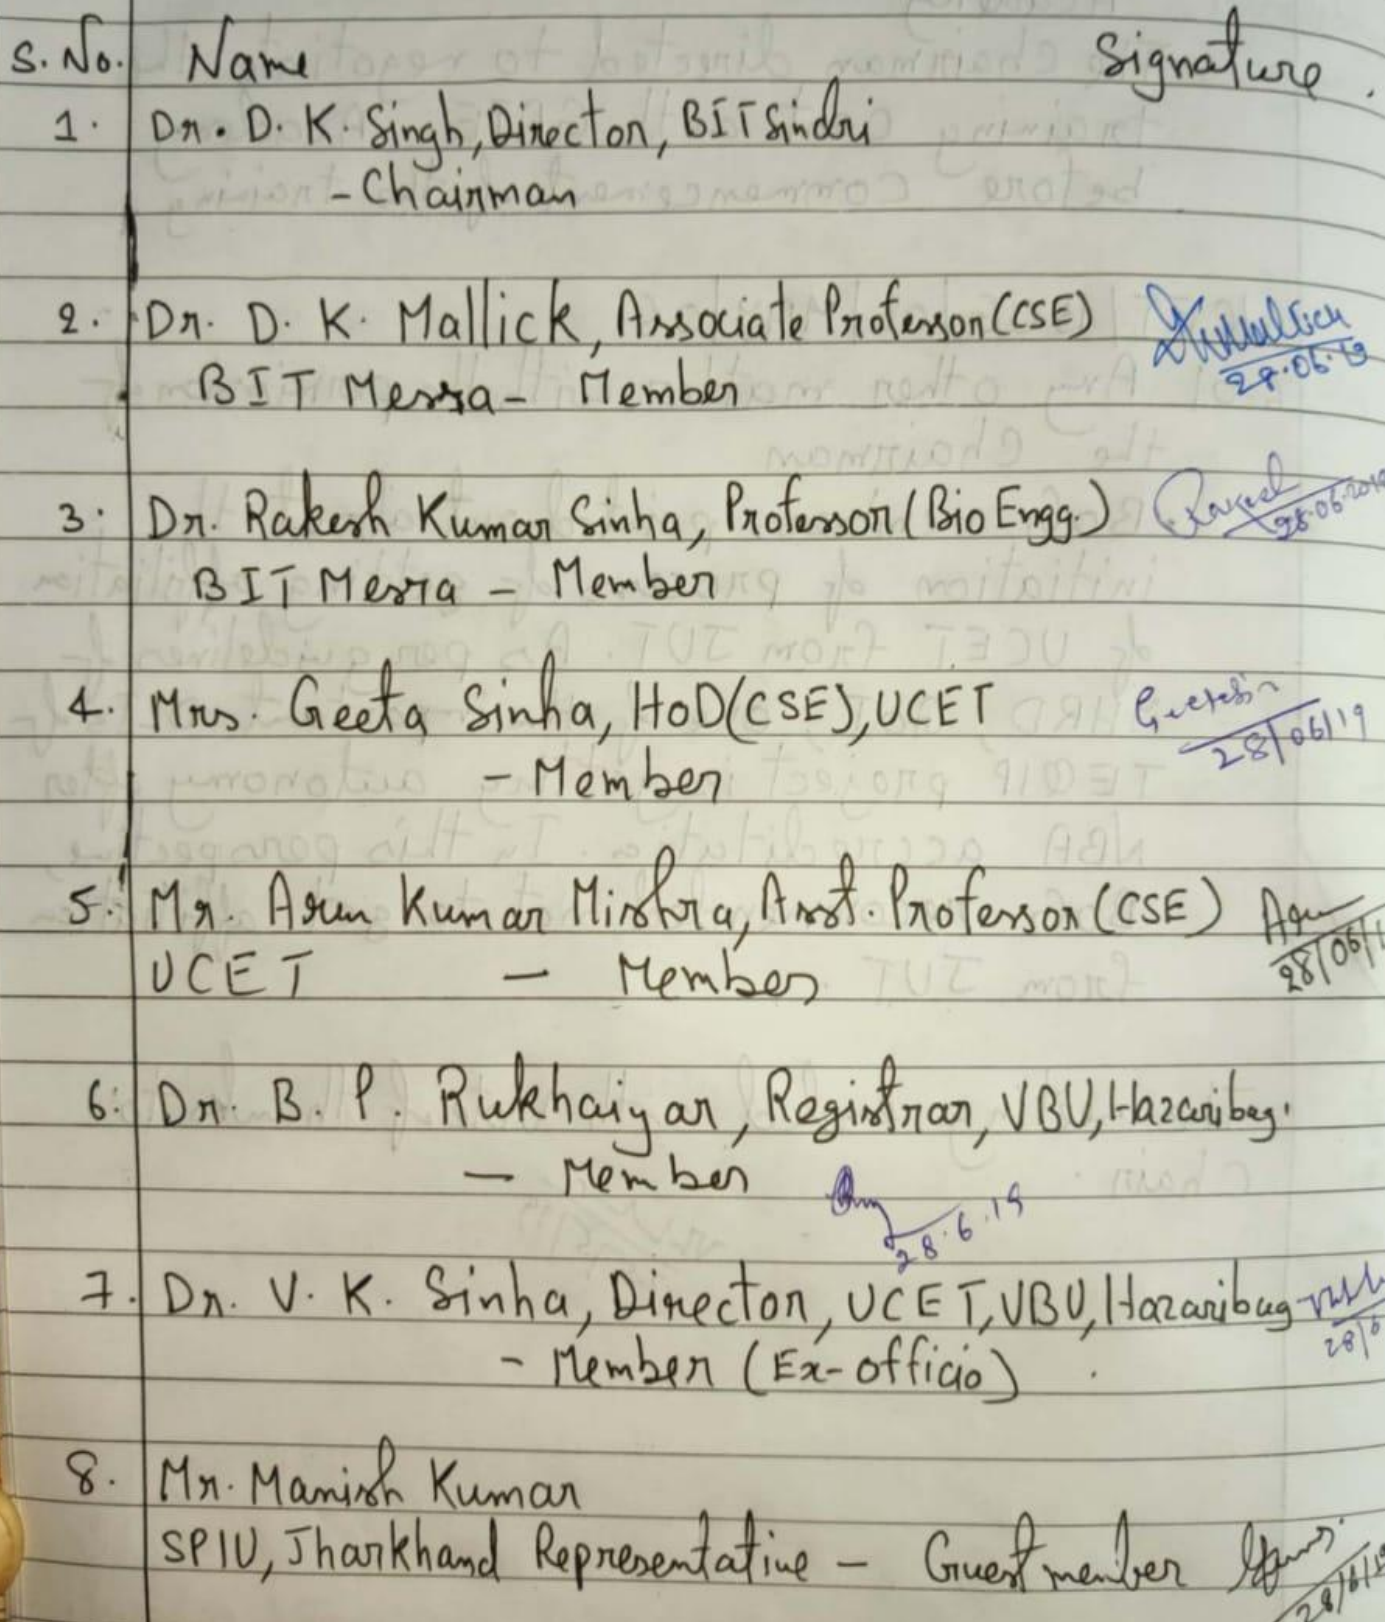 S. No. Name Signature.
1. Dr. D. K. Singh, Director, BIT Sindri
- Chairman
2. Dr. D. K. Mallick, Associate Professor (CSE)
28.06.19
BIT Mesra - Member
3. Dr. Rakesh Kumar Sinha, Professor (Bio Engg.) Rakesh
28.06.2019
BIT Mesra - Member
4. Mrs. Geeta Sinha, HoD (CSE), UCET
28/06/19
- Member
5. Mr. Arun Kumar Mishra, Asst. Professor (CSE) Arun
28/06/1
UCET - Member
6. Dr. B. P. Rukhaiyar, Registrar, VBU, Hazaribag.
- Member
28.6.19
7. Dr. V. K. Sinha, Director, UCET, VBU, Hazaribag
28/6
- Member (Ex-officio)
8. Mr. Manish Kumar
SPIU, Jharkhand Representative - Guest member
28/6/19